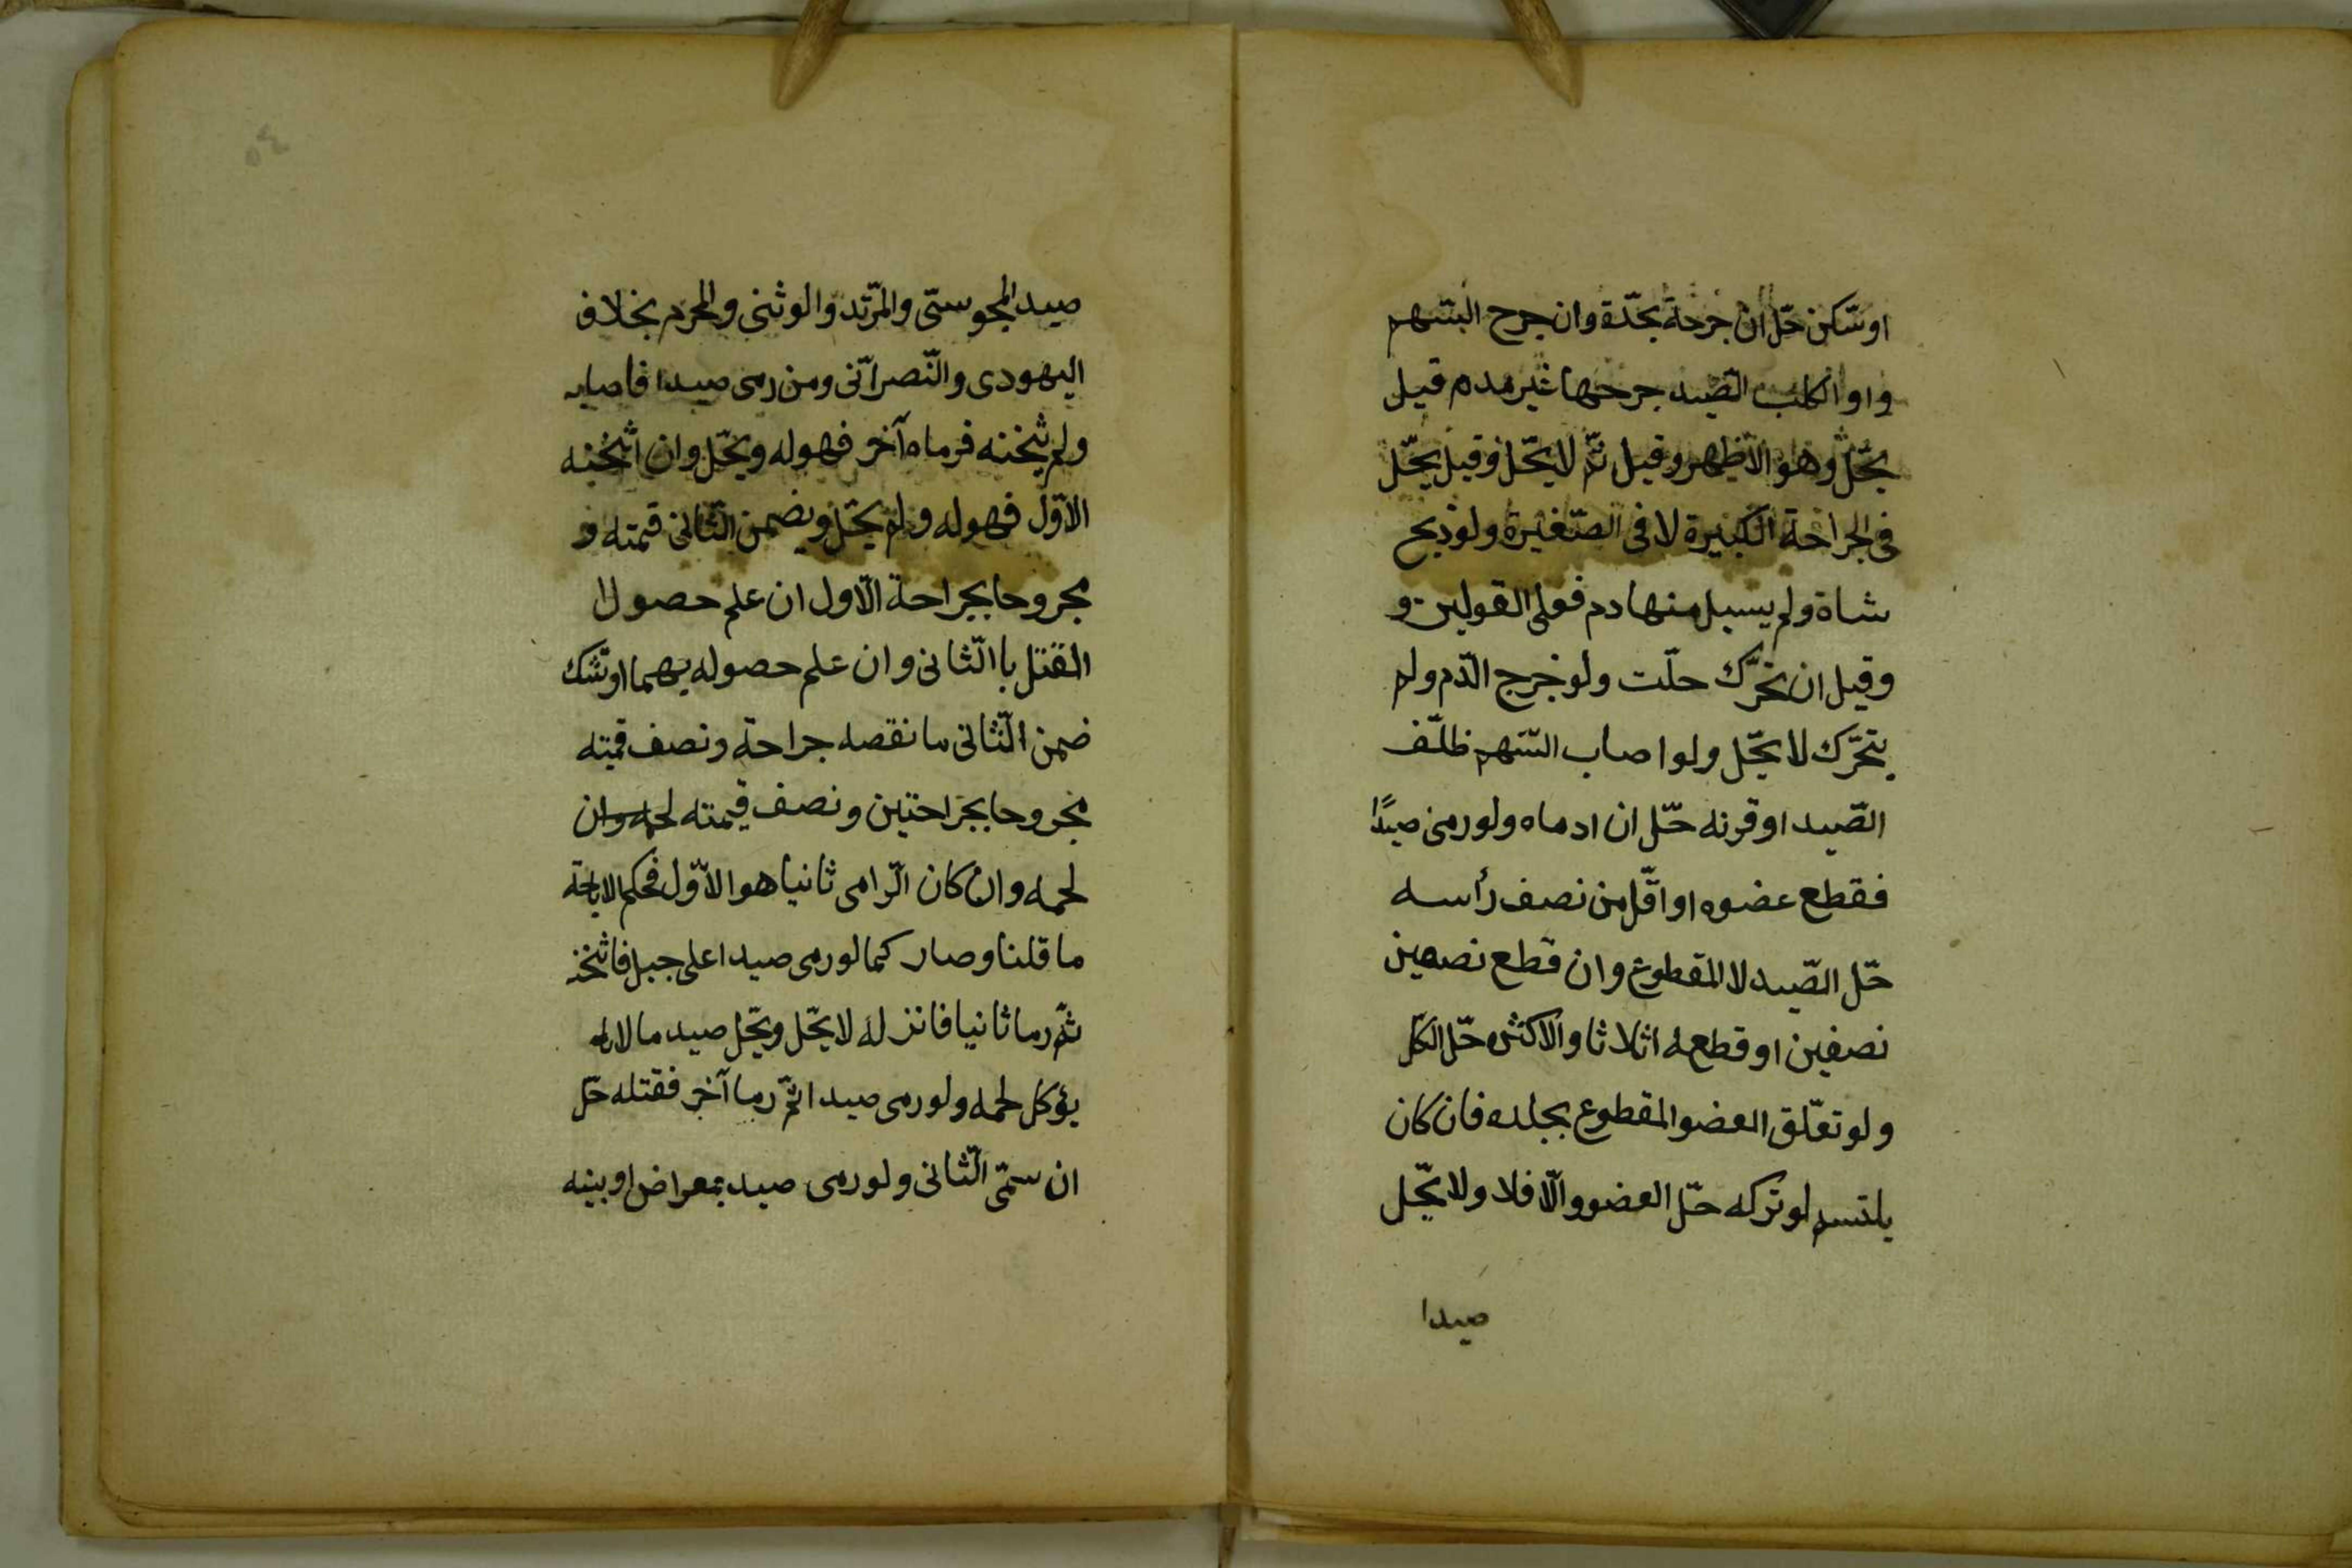 او سّكن حّل ان جرحة بحّدة وان جرح السّهم
و او الكلب الصّيد جرحها غير مدم قيل
يحّل وهو الاظهر وقيل ثّم لا يحّل وقيل يحّل
فى الجراحة الكبيرة لا فى الصّغيرة ولو ذبح
شاة ولم يسيل منها دم فعلى القولين و
وقيل ان تحّرك حلّت ولو خرج الدّم ولم
يتحّرك لا يحّل ولو اصاب السّهم ظلّف
الصّيد او قرنه حّل ان ادماه ولو رمى صيدًا
فقطع عضوه او اقّل من نصف رأسه
حّل الصّيد لا المقطوع وان قطع نصفين
نصفين او قطعه اثلاثا والاكثر حّل الكّل
ولو تعّلق العضو المقطوع بجلده فان كان
يلتسم لو تركه حّل العضو والّا فلا ولا يحّل
صيدا
٥٤
صيد المجوسّى والمرّتد والوثنى والمحرم بخلاف
اليهودى والنّصراّنى ومن رمى صيدا فاصابه
ولم يثخنه فرماه آخر فهو له ويحّل وان اثخنه
الاوّل فهو له ولم يحّل ويضمن الثّانى قيمته و
مجروحا بجراحة الّاول ان علم حصول ا
القتل باالثّانى وان علم حصوله بهما او شّك
ضمن الثّانى ما نقصه جراحة ونصف قيمته
مجروحا بجراحتين ونصف قيمته لحمه وان
لحمه وان كان الّرامى ثانيا هو الاّول فحكم الاباحة
ما قلنا وصار كما لو رمى صيدا على جبل فاثخنه
ثّم رما ثانيا فانزله لا يحّل ويحّل صيد ما لا
يؤكل لحمه ولو رمى صيدا ثّم رما آخر فقتله حّل
ان سمّى الثّانى ولو رمى صيد بمعراض او بينه